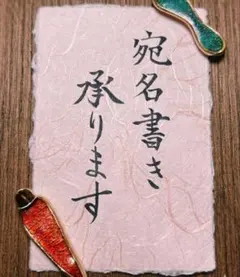 宛名書き
承ります